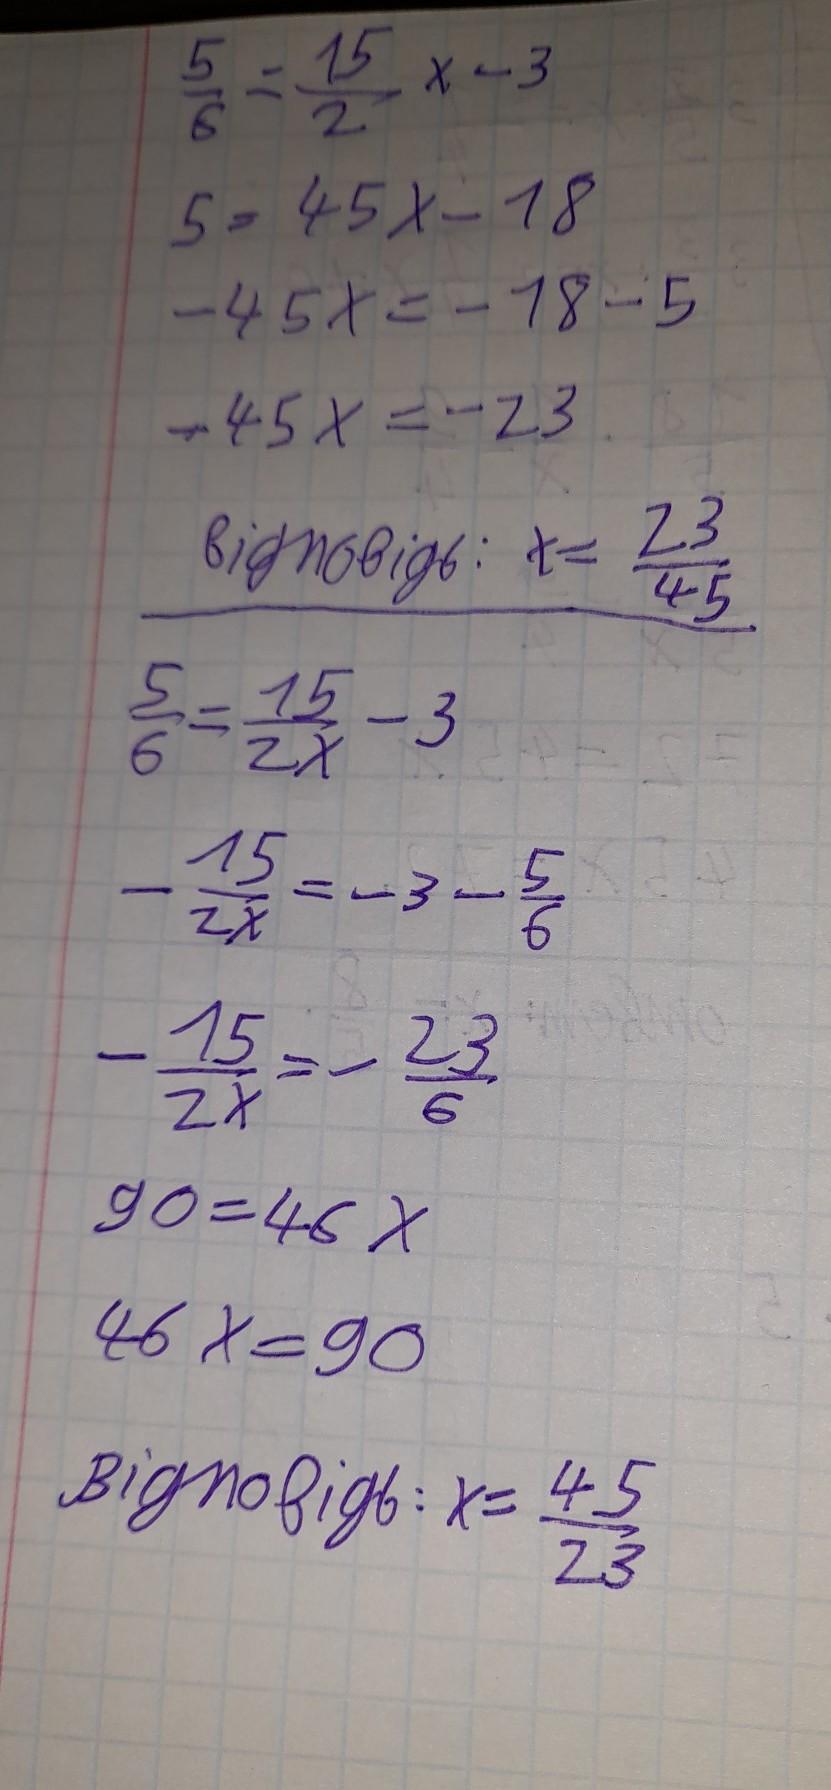 5/6 = 15/2 x - 3
5 = 45x - 18
-45x = -18 - 5
-45x = -23
Відповідь: x = 23/45
5/6 = 15/2x - 3
- 15/2x = -3 - 5/6
- 15/2x = - 23/6
90 = 46x
46x = 90
Відповідь: x = 45/23